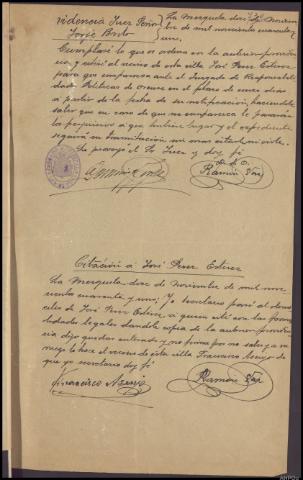 videncia Juez Señor La Mezquita doce de Noviem
Jorge Brito bre de mil novecientos cuarenta y
uno.
Cumplase lo que se ordena en la anterior providen
cia, y citese al vecino de esta villa José Perez Estevez
para que comparezca ante el Juzgado de Responsabili
dades Politicas de Orense en el plazo de cinco dias
a partir de la fecha de su notificación, haciendole
saber que en caso de no comparecer le pararán
los perjuicios a que hubiere lugar y el expediente
seguirá su tramitación sin mas citarle ni oirle.
Lo proveyó el Sr Juez y doy fé
Ramón Paz
Citación a José Perez Estevez
La Mezquita doce de Noviembre de mil nove
cientos cuarenta y uno; Yo secretario pasé al domi
cilio de José Perez Estevez, a quien cité con las forma
lidades legales dandole copia de la anterior providen
cia dijo quedar enterado y no firma por no saber y a su
ruego lo hace el vecino de esta villa Francisco Asenjo de
que yo secretario doy fé
Francisco Asenjo Ramón Paz